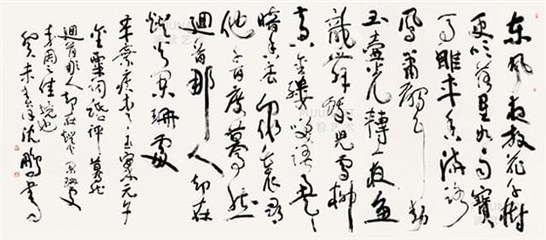 东风夜放花千树
更吹落星如雨宝
马雕车香满路
凤箫声动
玉壶光转一夜鱼
龙舞蛾儿雪柳
黄金缕笑语盈盈
暗香去众里寻
他千百度蓦然
迴首那人却在
灯火阑珊处
辛弃疾青玉案元夕
金粟词话评蓦然
迴首那人却在灯火阑珊处
秦周之佳境也
癸未沈鹏书